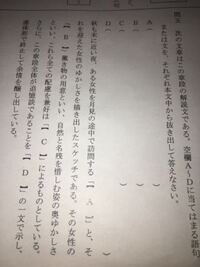 問五 次の文章はこの章段の解説文である。空欄A〜Dに当てはまる語句
または文を、それぞれ本文中から抜き出して答えなさい。
A（　　）
B（　　）
C（　　）
D（　　）
秋も末に近い夜、ある女性を月見の途中で訪問する【 A 】と、そ
れを迎えた女性のゆかしさを描き出したスケッチである。その女性の
【 B 】薫き物の用意といい、自然と名残を惜しむ姿の奥ゆかしさ
といい、これら全ての配慮を兼好は【 C 】によるものとしている。
さらに、この章段全体が追憶談であることを【 D 】の一文で示し、
連体形で終止して余情を醸し出している。